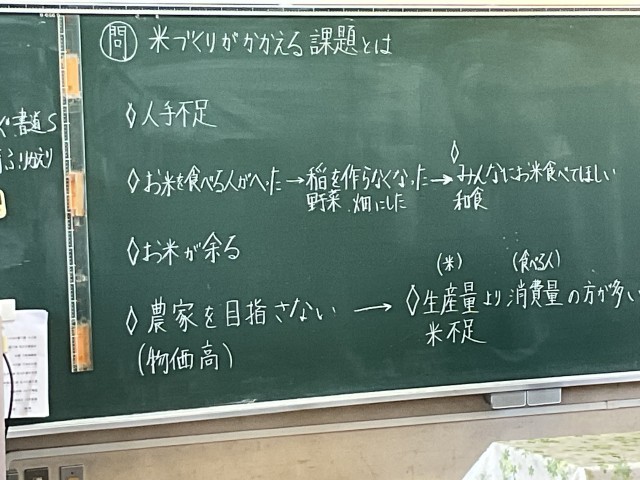 問 米づくりがかかえる課題とは
◊人手不足
◊お米を食べる人がへった→稲を作らなくなった→◊みんなにお米食べてほしい
野菜、畑にした 和食
◊お米が余る
(米) (食べる人)
◊農家を目指さない→◊生産量より消費量の方が多い
(物価高) 米不足